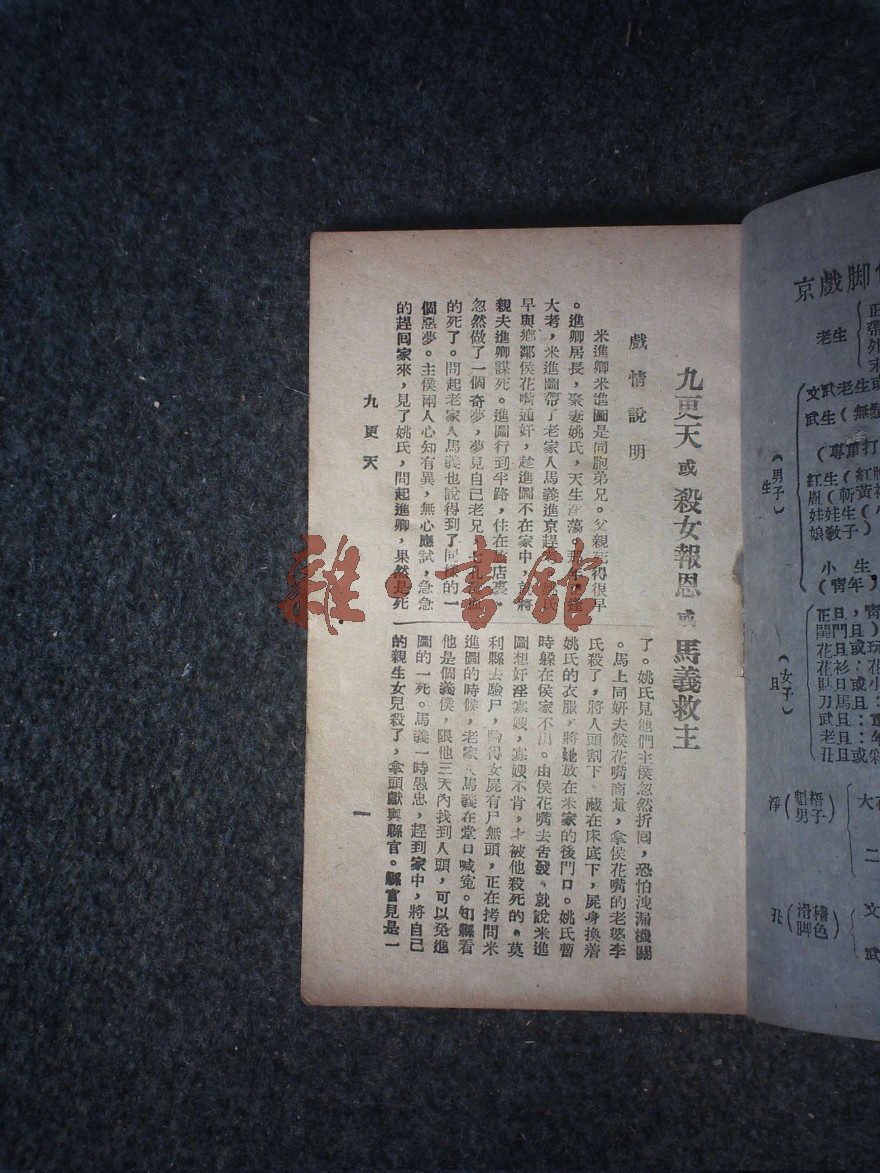 九更天 或 殺女報恩 或 馬義救主
戲情說明
米進卿米進圖是同胞弟兄。父親死得很早
。進卿居長，娶妻姚氏，天生淫蕩。那年，逢
大考，米進圖帶了老家人馬義進京趕考。姚氏
早與鄉鄰侯花嘴通奸，趁進圖不在家中，就將
親夫進卿謀死。進圖行到半路，住在旅店裏，
忽然做了一個奇夢，夢見自己老兄，七孔流血
的死了。問起老家人馬義也說得到了同樣的一
個惡夢。主僕兩人心知有異，無心應試，急急
的趕囘家來，見了姚氏，問起進卿，果然是死
了。姚氏見他們主僕忽然折囘，恐怕洩漏機關
。馬上同姘夫候花嘴商量，拿侯花嘴的老婆李
氏殺了，將人頭割下。藏在床底下，屍身換着
姚氏的衣服，將她放在米家的後門口。姚氏暫
時躲在侯家不出。由侯花嘴去告發、就說米進
圖想奸淫寡嫂，寡嫂不肯，才被他殺死的。莫
利縣去驗尸，驗得女屍有尸無頭，正在拷問米
進圖的時候，老家人馬義在堂口喊寃。知縣看
他是個義僕，限他三天內找到人頭，可以免進
圖的一死。馬義一時愚忠，趕到家中，將自己
的親生女兒殺了，拿頭獻與縣官。縣官見是一
九更天
一
雜·書館
京戲脚
老生
正
帶
外
末
文武老生或
武生（無
（專重打
紅生（紅
娃娃生（小
娘敎子）
（男子）
生
小生
（靑年）
正旦，靑
閨門旦）
花旦或玩
花衫：花
貼旦或小
刀馬旦：
武旦：重
老旦：年
丑旦或彩
（女子）
旦
淨
（魁梧男子）
大
二
丑
（滑稽脚色）
文
武